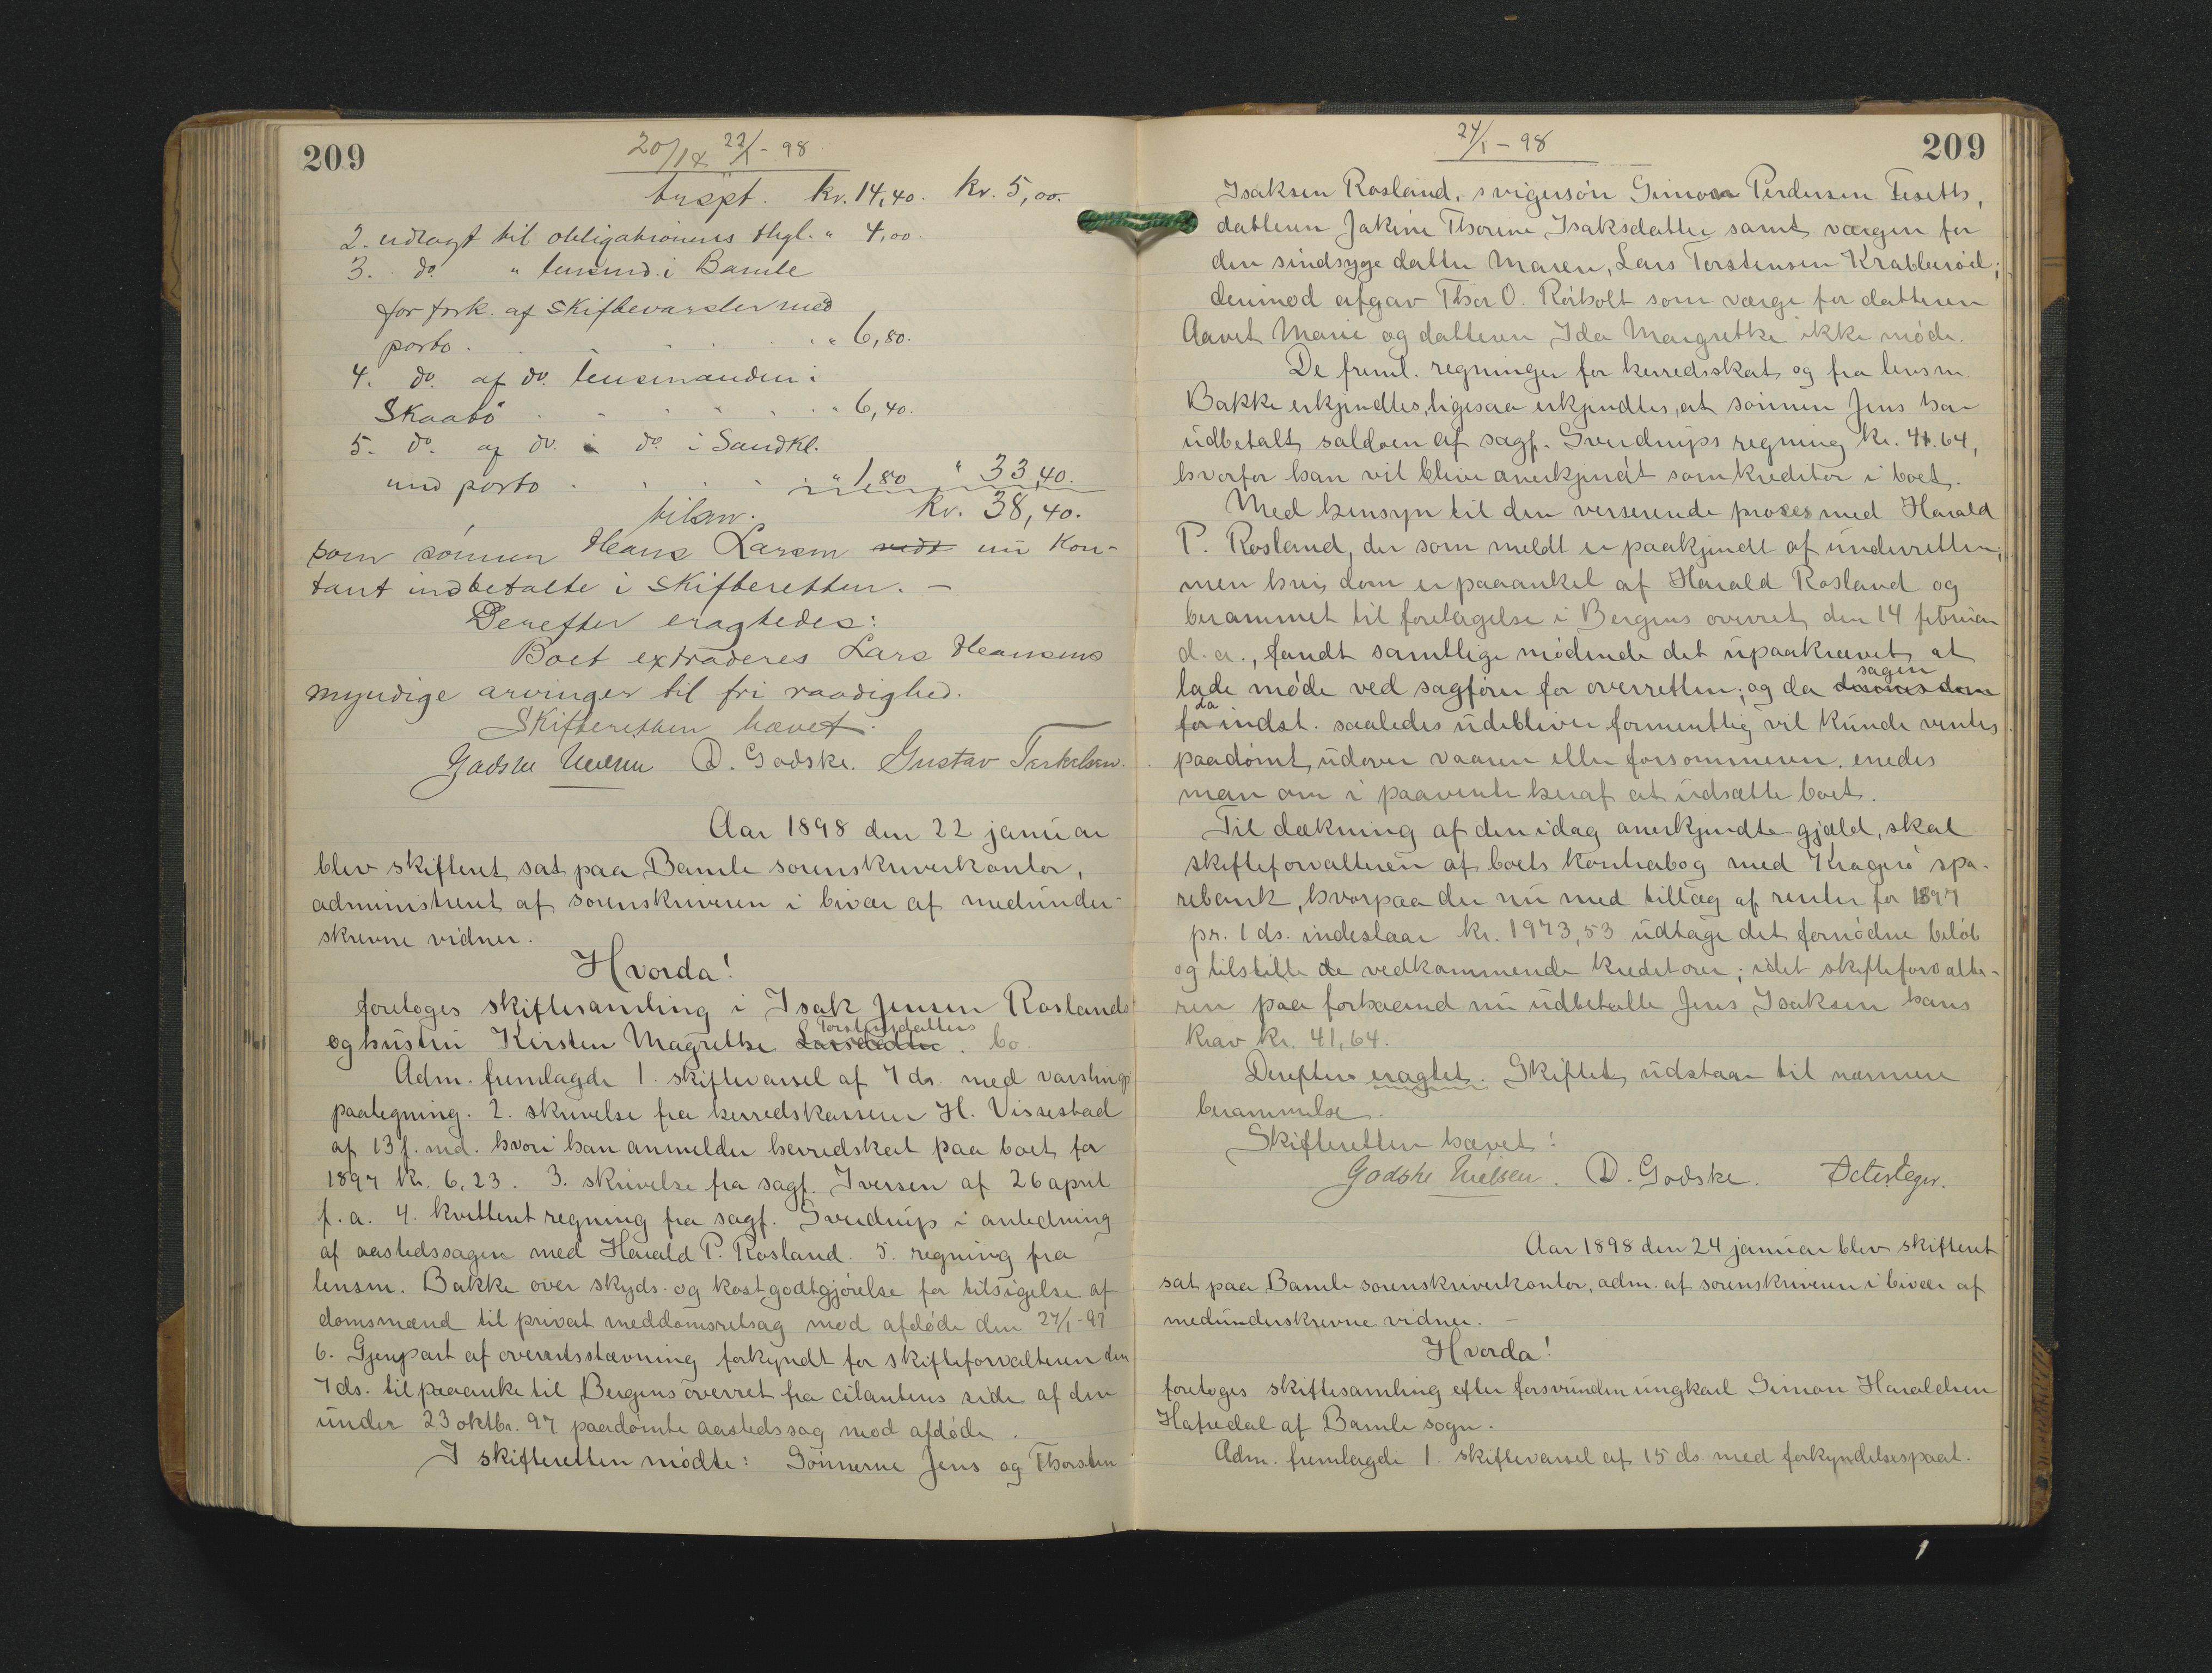 209
20/1 & 22/1 - 98
trspt. kr. 14,40. kr. 5,00.
2. udlagt til obligationens thgl. " 4,00.
3. do. " lensmd. i Bamle
for fork. af skiftevarsler med
porto . . . . . " 6,80.
4. do. af do. lensmanden i
Skaatö . . . . . " 6,40.
5. do. af do. i do. i Sandkl.
med porto . . . . " 1,80 " 33,40.
tilsm. kr. 38,40.
som sönnen Hans Larsen nu kon-
tant indbetalte i skifteretten. —
Derefter eragtedes:
Boet extraderes Lars Hansens
myndige arvinger til fri raadighed.
Skifteretten hævet.
Godske Nielsen D. Godske. Gustav Terkelsen.
Aar 1898 den 22 januar
blev skifteret sat paa Bamle sorenskriverkontor,
administreret af sorenskriveren i bivær af medunder-
skrevne vidner.
Hvorda!
foretoges skiftesamling i Isak Jensen Roslands
og hustru Kirsten Magrethe Larsdatter Torstensdatters bo.
Adm. fremlagde 1. skiftevarsel af 7 ds. med varslings
paategning. 2. skrivelse fra herredskasserer H. Vissestad
af 13 f. md. hvori han anmelder herredskat paa boet for
1897 kr. 6,23. 3. skrivelse fra sagf. Iversen af 26 april
f. a. 4. kvitteret regning fra sagf. Sverdrup i anledning
af aastedssagen med Harald P. Rosland. 5. regning fra
lensm. Bakke over skyds- og kostgodtgjörelse for tilsigelse af
domsmænd til privat meddomsretsag mod afdöde den 27/1-97
6. Gjenpart af overretsstævning forkyndt for skifteforvalteren den
7 ds. til paaanke til Bergens overret fra citantens side af den
under 23 oktbr. 97 paadömte aastedssag mod afdöde.
I skifteretten mödte: Sönnerne Jens og Thorsten
24/1 - 98
209
Isaksen Rosland, svigersön Simon Perdersen Feseth,
datteren Jakine Thorine Isaksdatter samt værgen for
den sindsyge datter Maren, Lars Torstensen Krabberöd;
derimod afgav Thor O. Rörholt som værge for datteren
Aavet Marie og datteren Ida Margrethe ikke möde.
De freml. regninger for herredsskat og fra lensm.
Bakke erkjendtes, ligesaa erkjendtes, at sönnen Jens har
udbetalt saldoen af sagf. Sverdrups regning kr. 41.64,
hvorfor han vil blive anerkjendt som kreditor i boet.
Med hensyn til den verserende proces med Harald
P. Rosland, der som meldt er paakjendt af underretten;
men hvis dom er paaanket af Harald Rosland og
berammet til foretagelse i Bergens overret den 14 februar
d. a., fandt samtlige mödende det upaakrævet at
lade möde ved sagförer for overretten; og da sagen
da indst. saaledes udebliver formentlig vil kunde ventes
paadömt udover vaaren eller forsommeren, enedes
man om i paavente heraf at udsætte boet.
Til dækning af den idag anerkjendte gjæld, skal
skifteforvalteren af boets kontrabog med Kragerö spa-
rebank, hvorpaa der nu med tillæg af renter for 1897
pr. 1 ds. indestaar kr. 1973,53 udtage det fornödne belöb
og tilstille de vedkommende kreditorer; idet skifteforvalte-
ren paa forhaand nu udbetalte Jens Isaksen hans
krav kr. 41,64.
Derefter eragtet. Skiftet udstaar til nærmere
berammelse.
Skifteretten hævet!
Godske Nielsen. D. Godske.
Aar 1898 den 24 januar blev skifteret
sat paa Bamle sorenskriverkontor, adm. af sorenskriveren i bivær af
medunderskrevne vidner. —
Hvorda!
foretoges skiftesamling efter forsvunden ungkarl Simon Haraldsen
Hafredal af Bamle sogn.
Adm. fremlagde 1. skiftevarsel af 15 ds. med forkyndelsespaat.